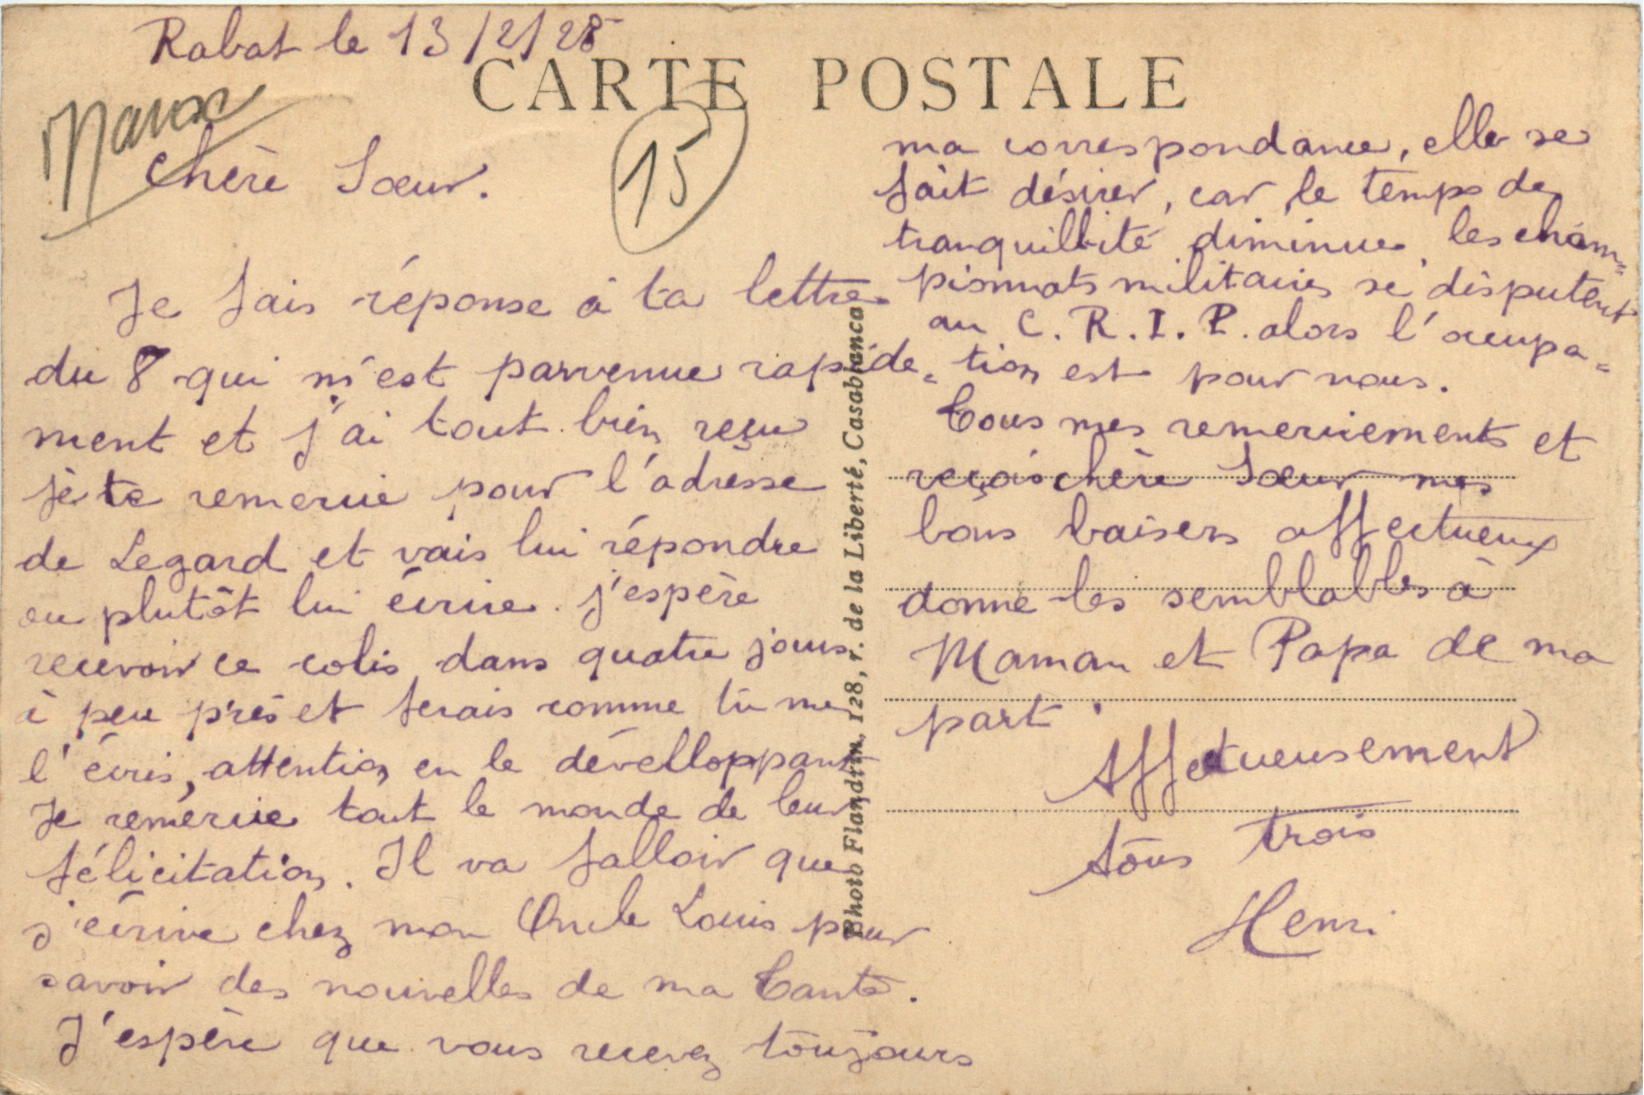 Rabat le 13/2/28
CARTE POSTALE
Maroc
15
Chère Sœur.
Je fais réponse à ta lettre
du 8 qui m'est parvenue rapide=
ment et j'ai tout bien reçu
je te remercie pour l'adresse
de Legard et vais lui répondre
ou plutôt lui écrire. j'espère
recevoir ce colis dans quatre jours
à peu près et ferais comme tu me
l'écris, attention en le dévelloppant
Je remercie tout le monde de leur
félicitation. Il va falloir que
j'écrive chez mon Oncle Louis pour
savoir des nouvelles de ma Tante.
J'espère que vous recevez toujours
ma correspondance, elle se
fait désirer, car le temps de
tranquillité diminue, les cham=
pionnats militaires se disputent
au C.R.I.P. alors l'occupa=
tion est pour nous.
Tous mes remerciements et
reçois chère Sœur mes
bons baisers affectueux
donne-les semblables à
Maman et Papa de ma
part.
Affectueusement
tous trois
Henri
Photo Flandrin, 128, r. de la Liberté, Casablanca